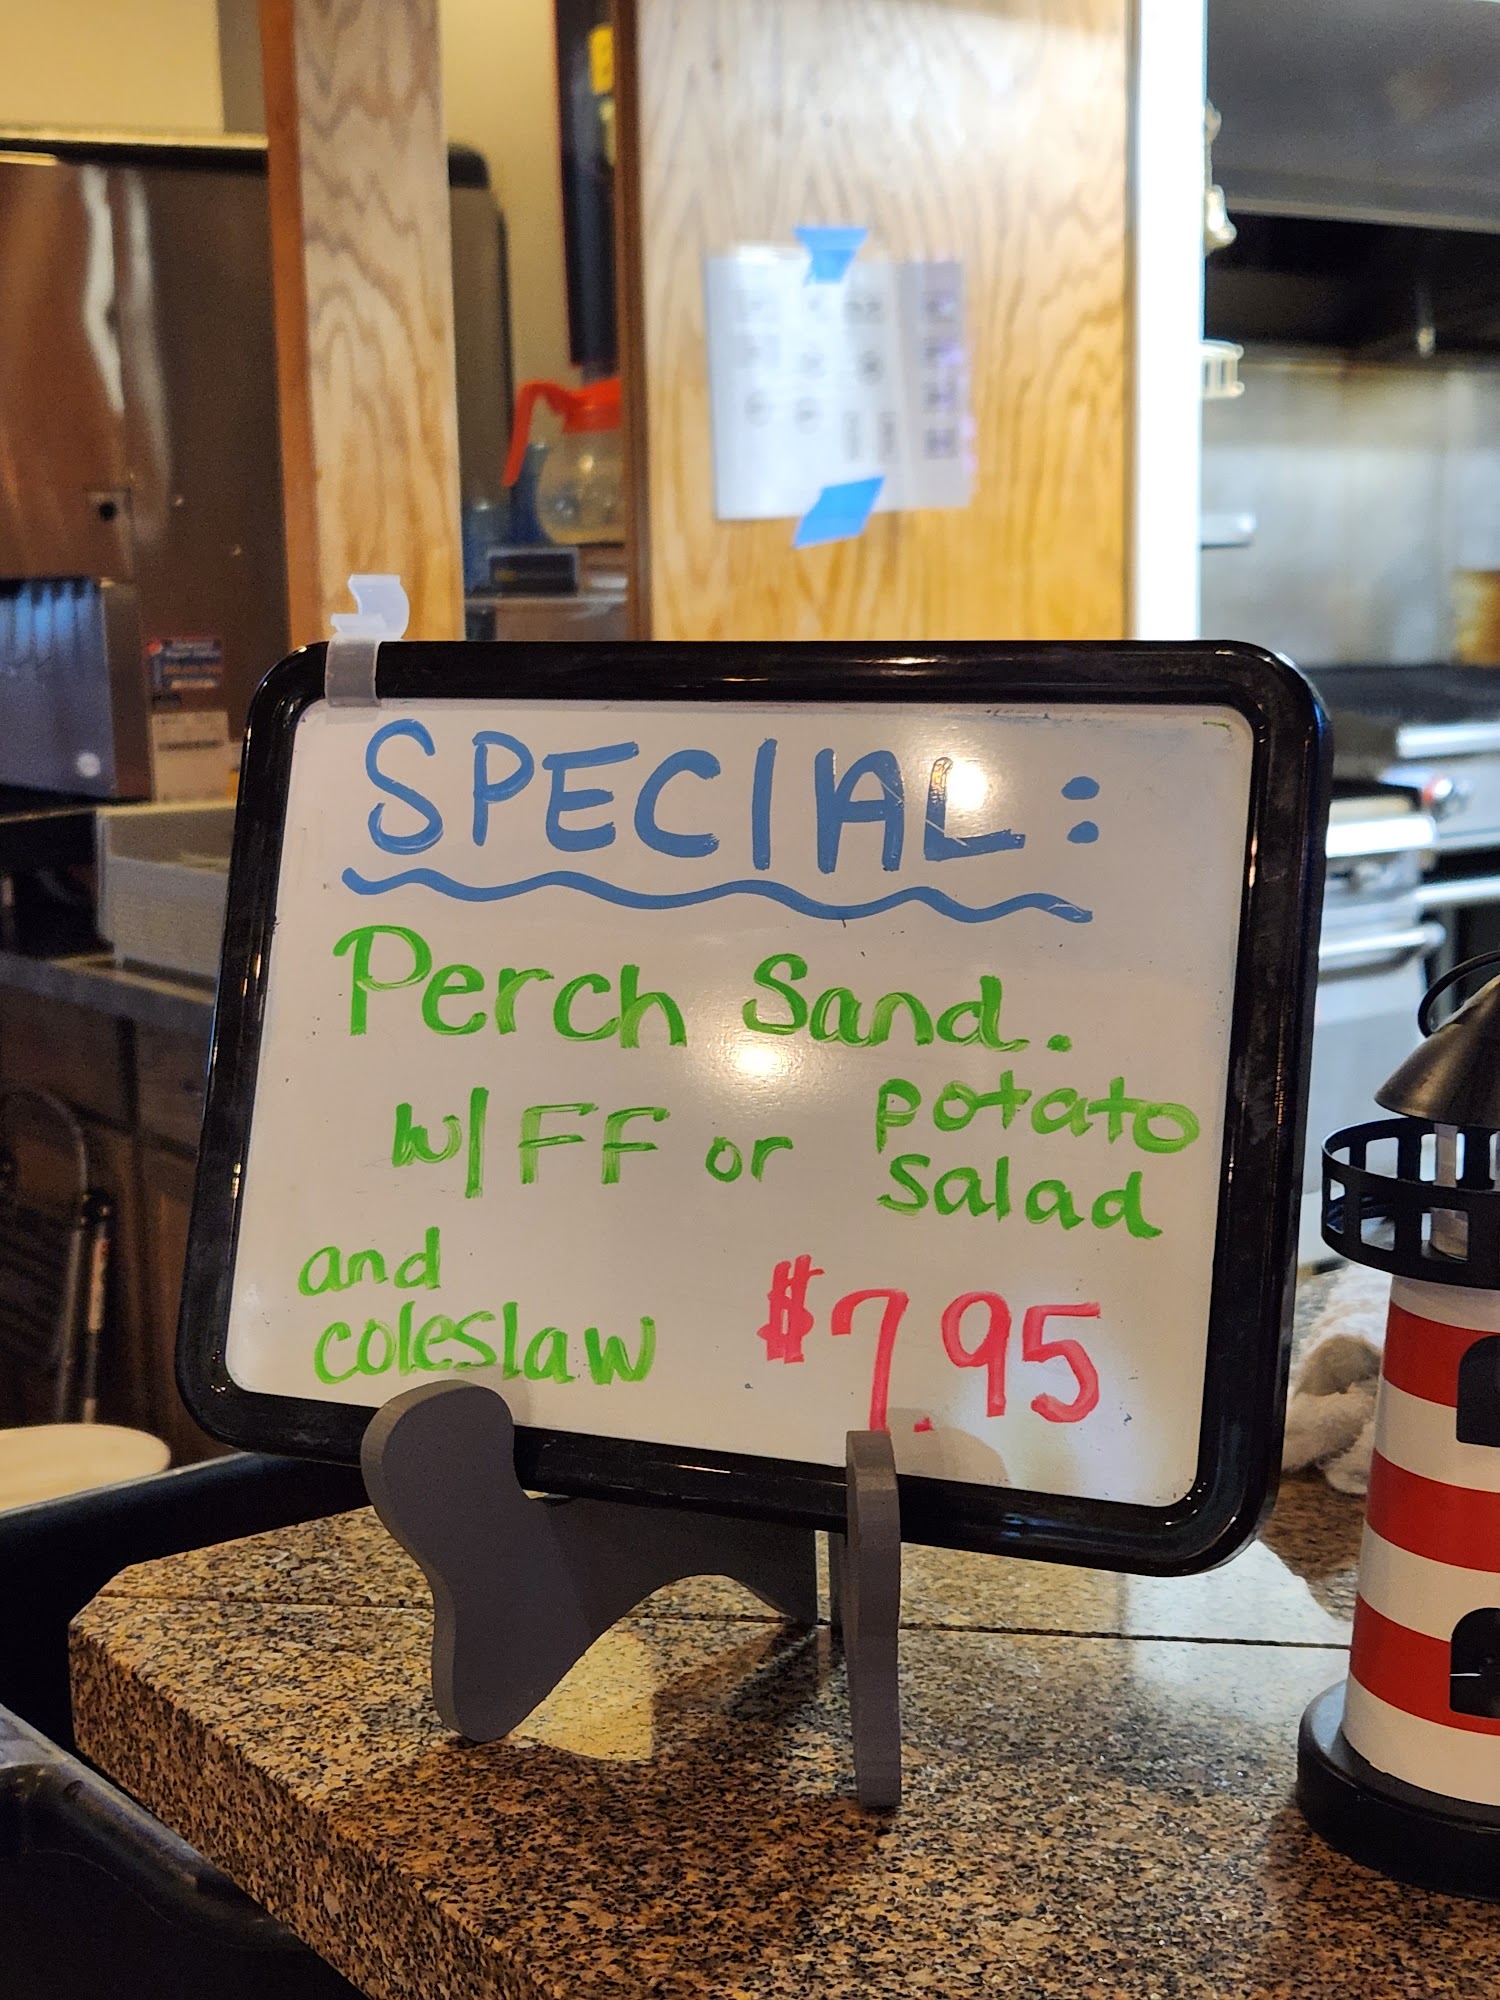 SPECIAL:
Perch Sand.
w/ FF or potato
salad
and
coleslaw $7.95